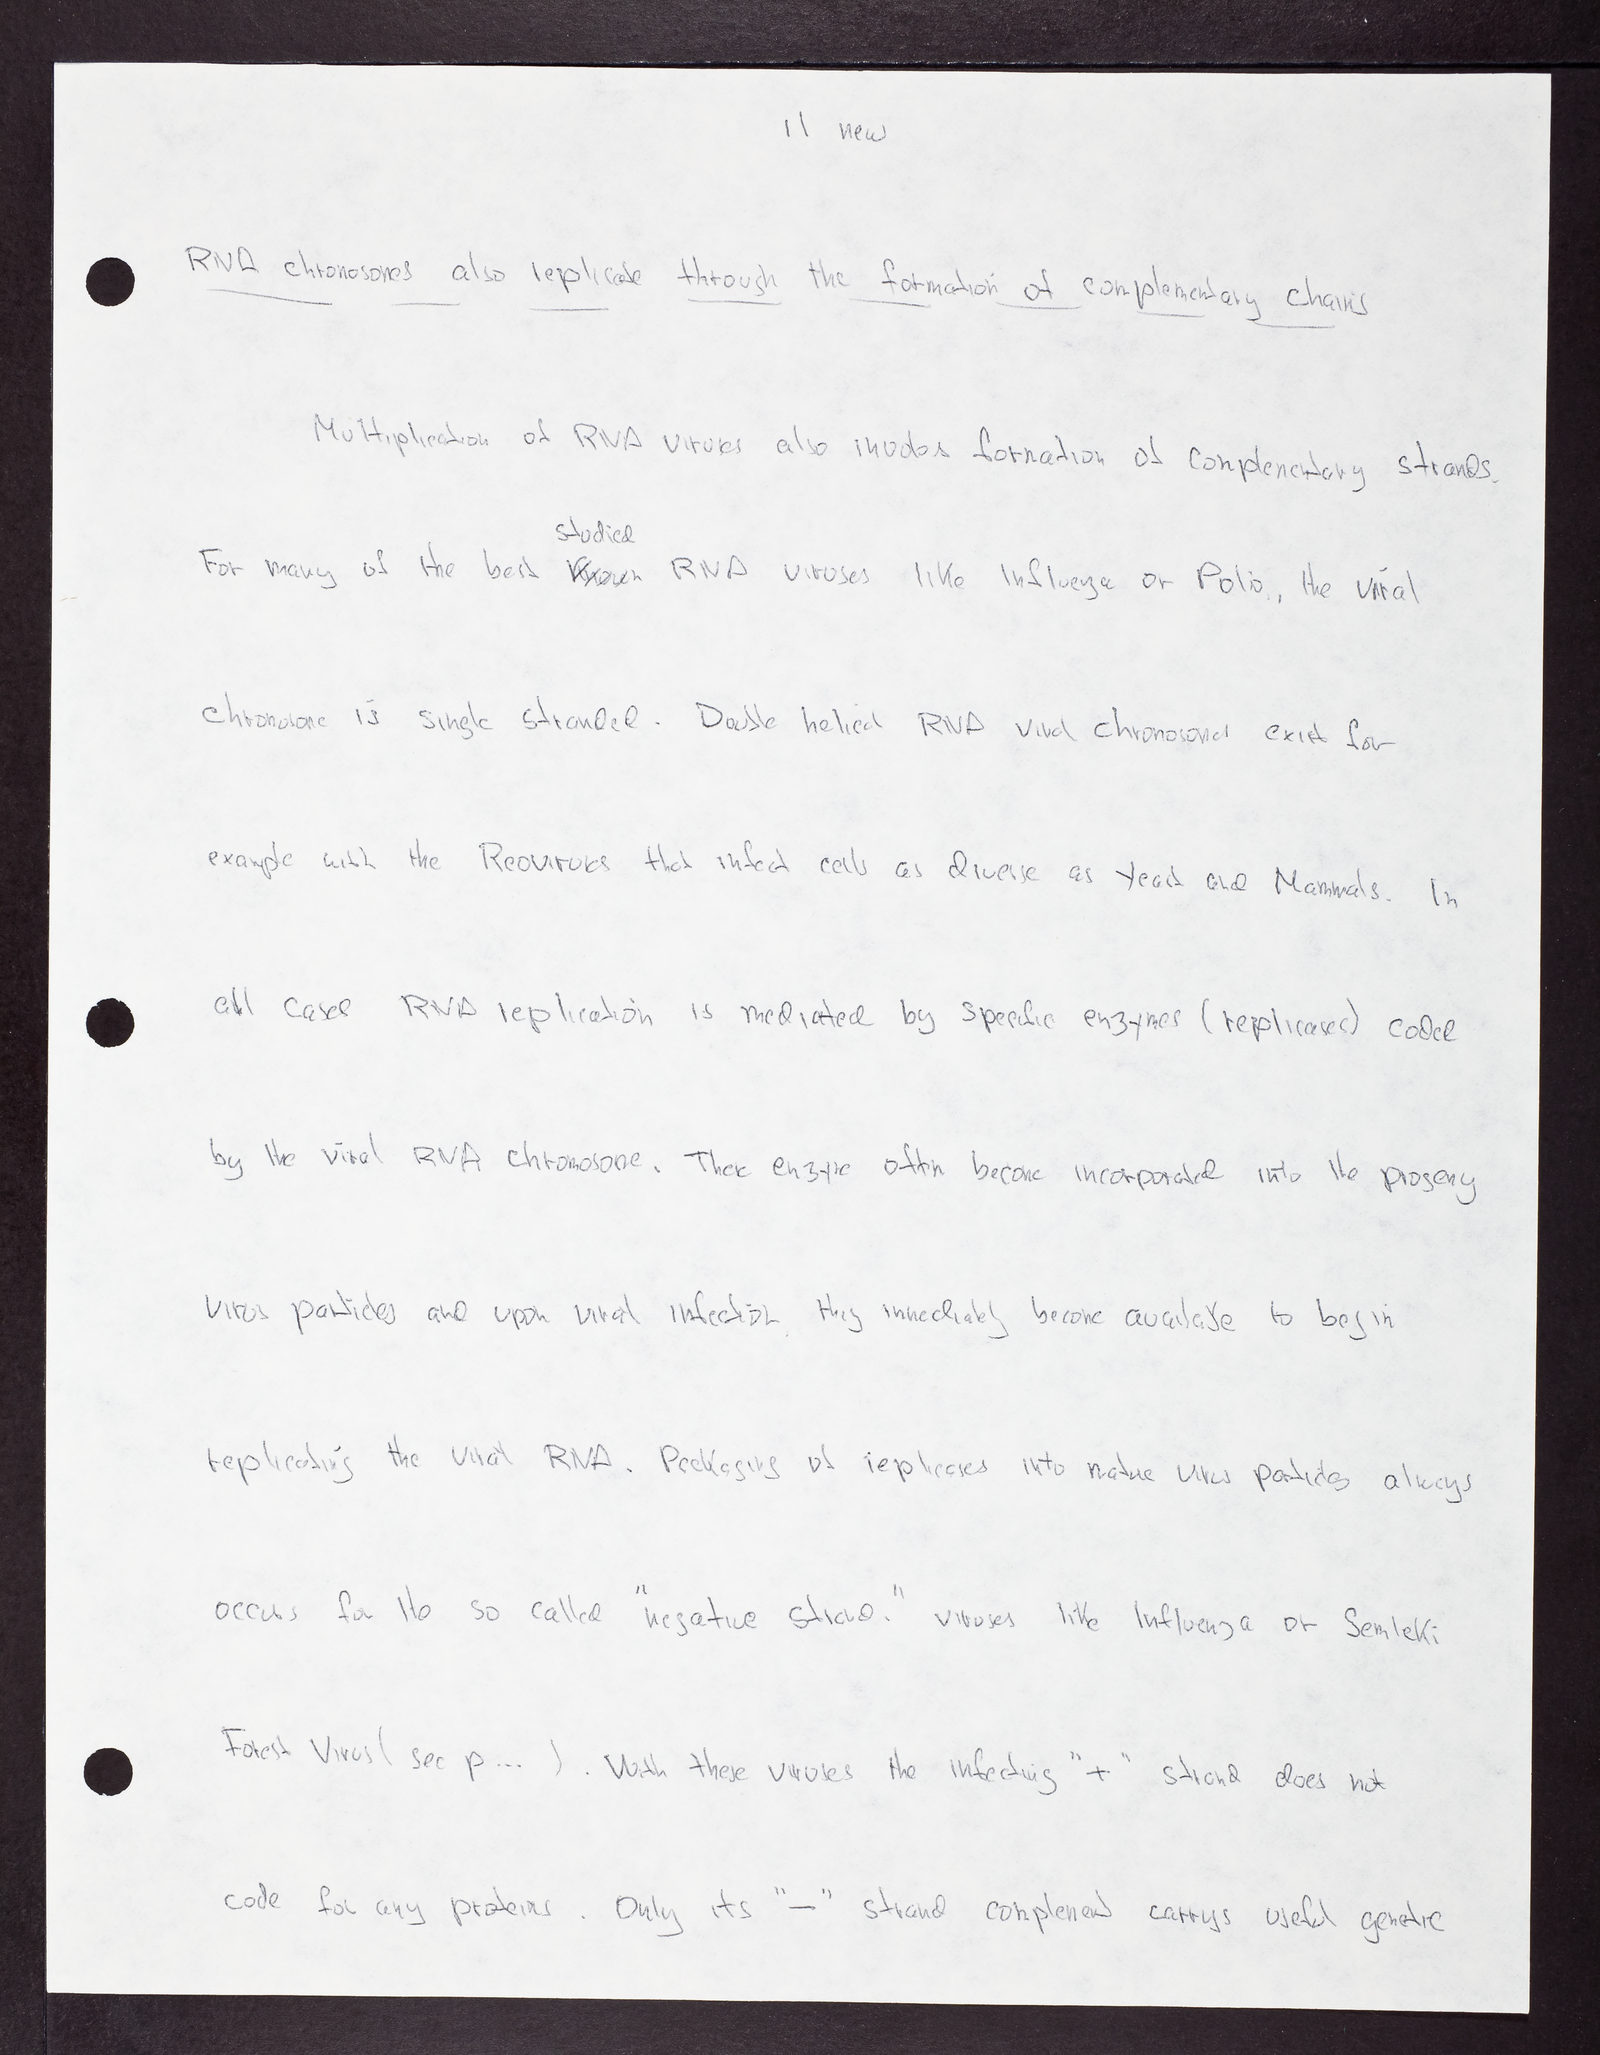 11 new
RNA chromosomes also replicate through the formation of complementary chains
Multiplication of RNA viruses also involves formation of complementary strands.
studied
For many of the best known RNA viruses like Influenza or Polio, the viral
chromosome is single stranded. Double helical RNA viral chromosomes exist for
example with the Reoviruses that infect cells as diverse as Yeast and Mammals. In
all cases RNA replication is mediated by specific enzymes (replicases) coded
by the viral RNA chromosome. These enzyme often become incorporated into the progeny
virus particles and upon viral infection, they immediately become available to begin
replicating the viral RNA. Packaging of replicases into mature virus particles always
occurs for the so called "negative strand." viruses like Influenza or Semleki
Forest Virus (see p ... ). With these viruses the infecting "+" strand does not
code for any proteins. Only its "—" strand complement carrys useful genetic